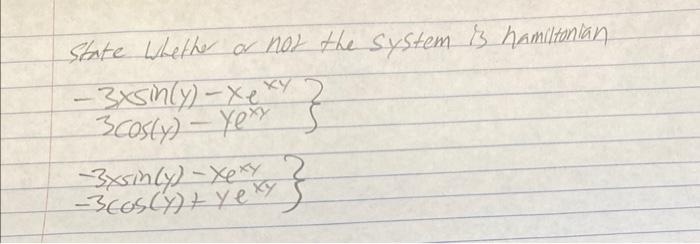 State Whether or not the system is hamiltonian
-3xsin(y) - xe^xy }
3cos(y) - ye^xy
-3xsin(y) - xe^xy }
-3cos(y) + ye^xy